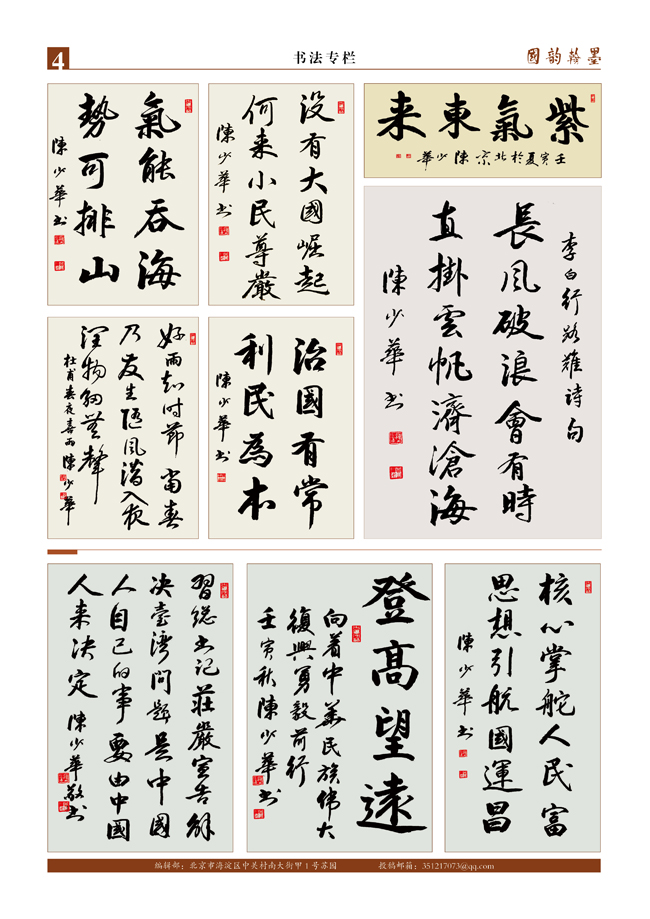 4
书法专栏
國韵翰墨
氣能吞海
勢可排山
陳少華书
没有大國崛起
何来小民尊嚴
陳少華书
紫氣東来
壬寅夏於北京 陳少華
李白行路難詩句
長风破浪會有時
直掛雲帆濟滄海
陳少華书
好雨知时節 當春
乃发生随风潜入夜
潤物細無聲
杜甫春夜喜雨 陳少華
治國有常
利民為本
陳少華书
習总书记莊嚴宣告解
决臺湾问题是中國
人自己的事 要由中國
人来决定 陳少華敬书
登高望遠
向着中華民族偉大
復興勇毅前行
壬寅秋陳少華书
核心掌舵人民富
思想引航國運昌
陳少華书
编辑部：北京市海淀区中关村南大街甲1号苏园
投稿邮箱：351217073@qq.com